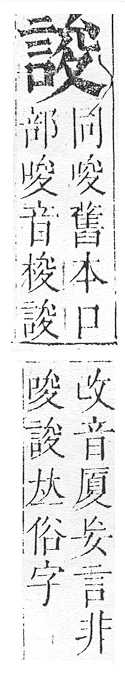 誜
同唆舊本口
部唆音梭誜
改音厦妄言非
唆誜𠀤俗字